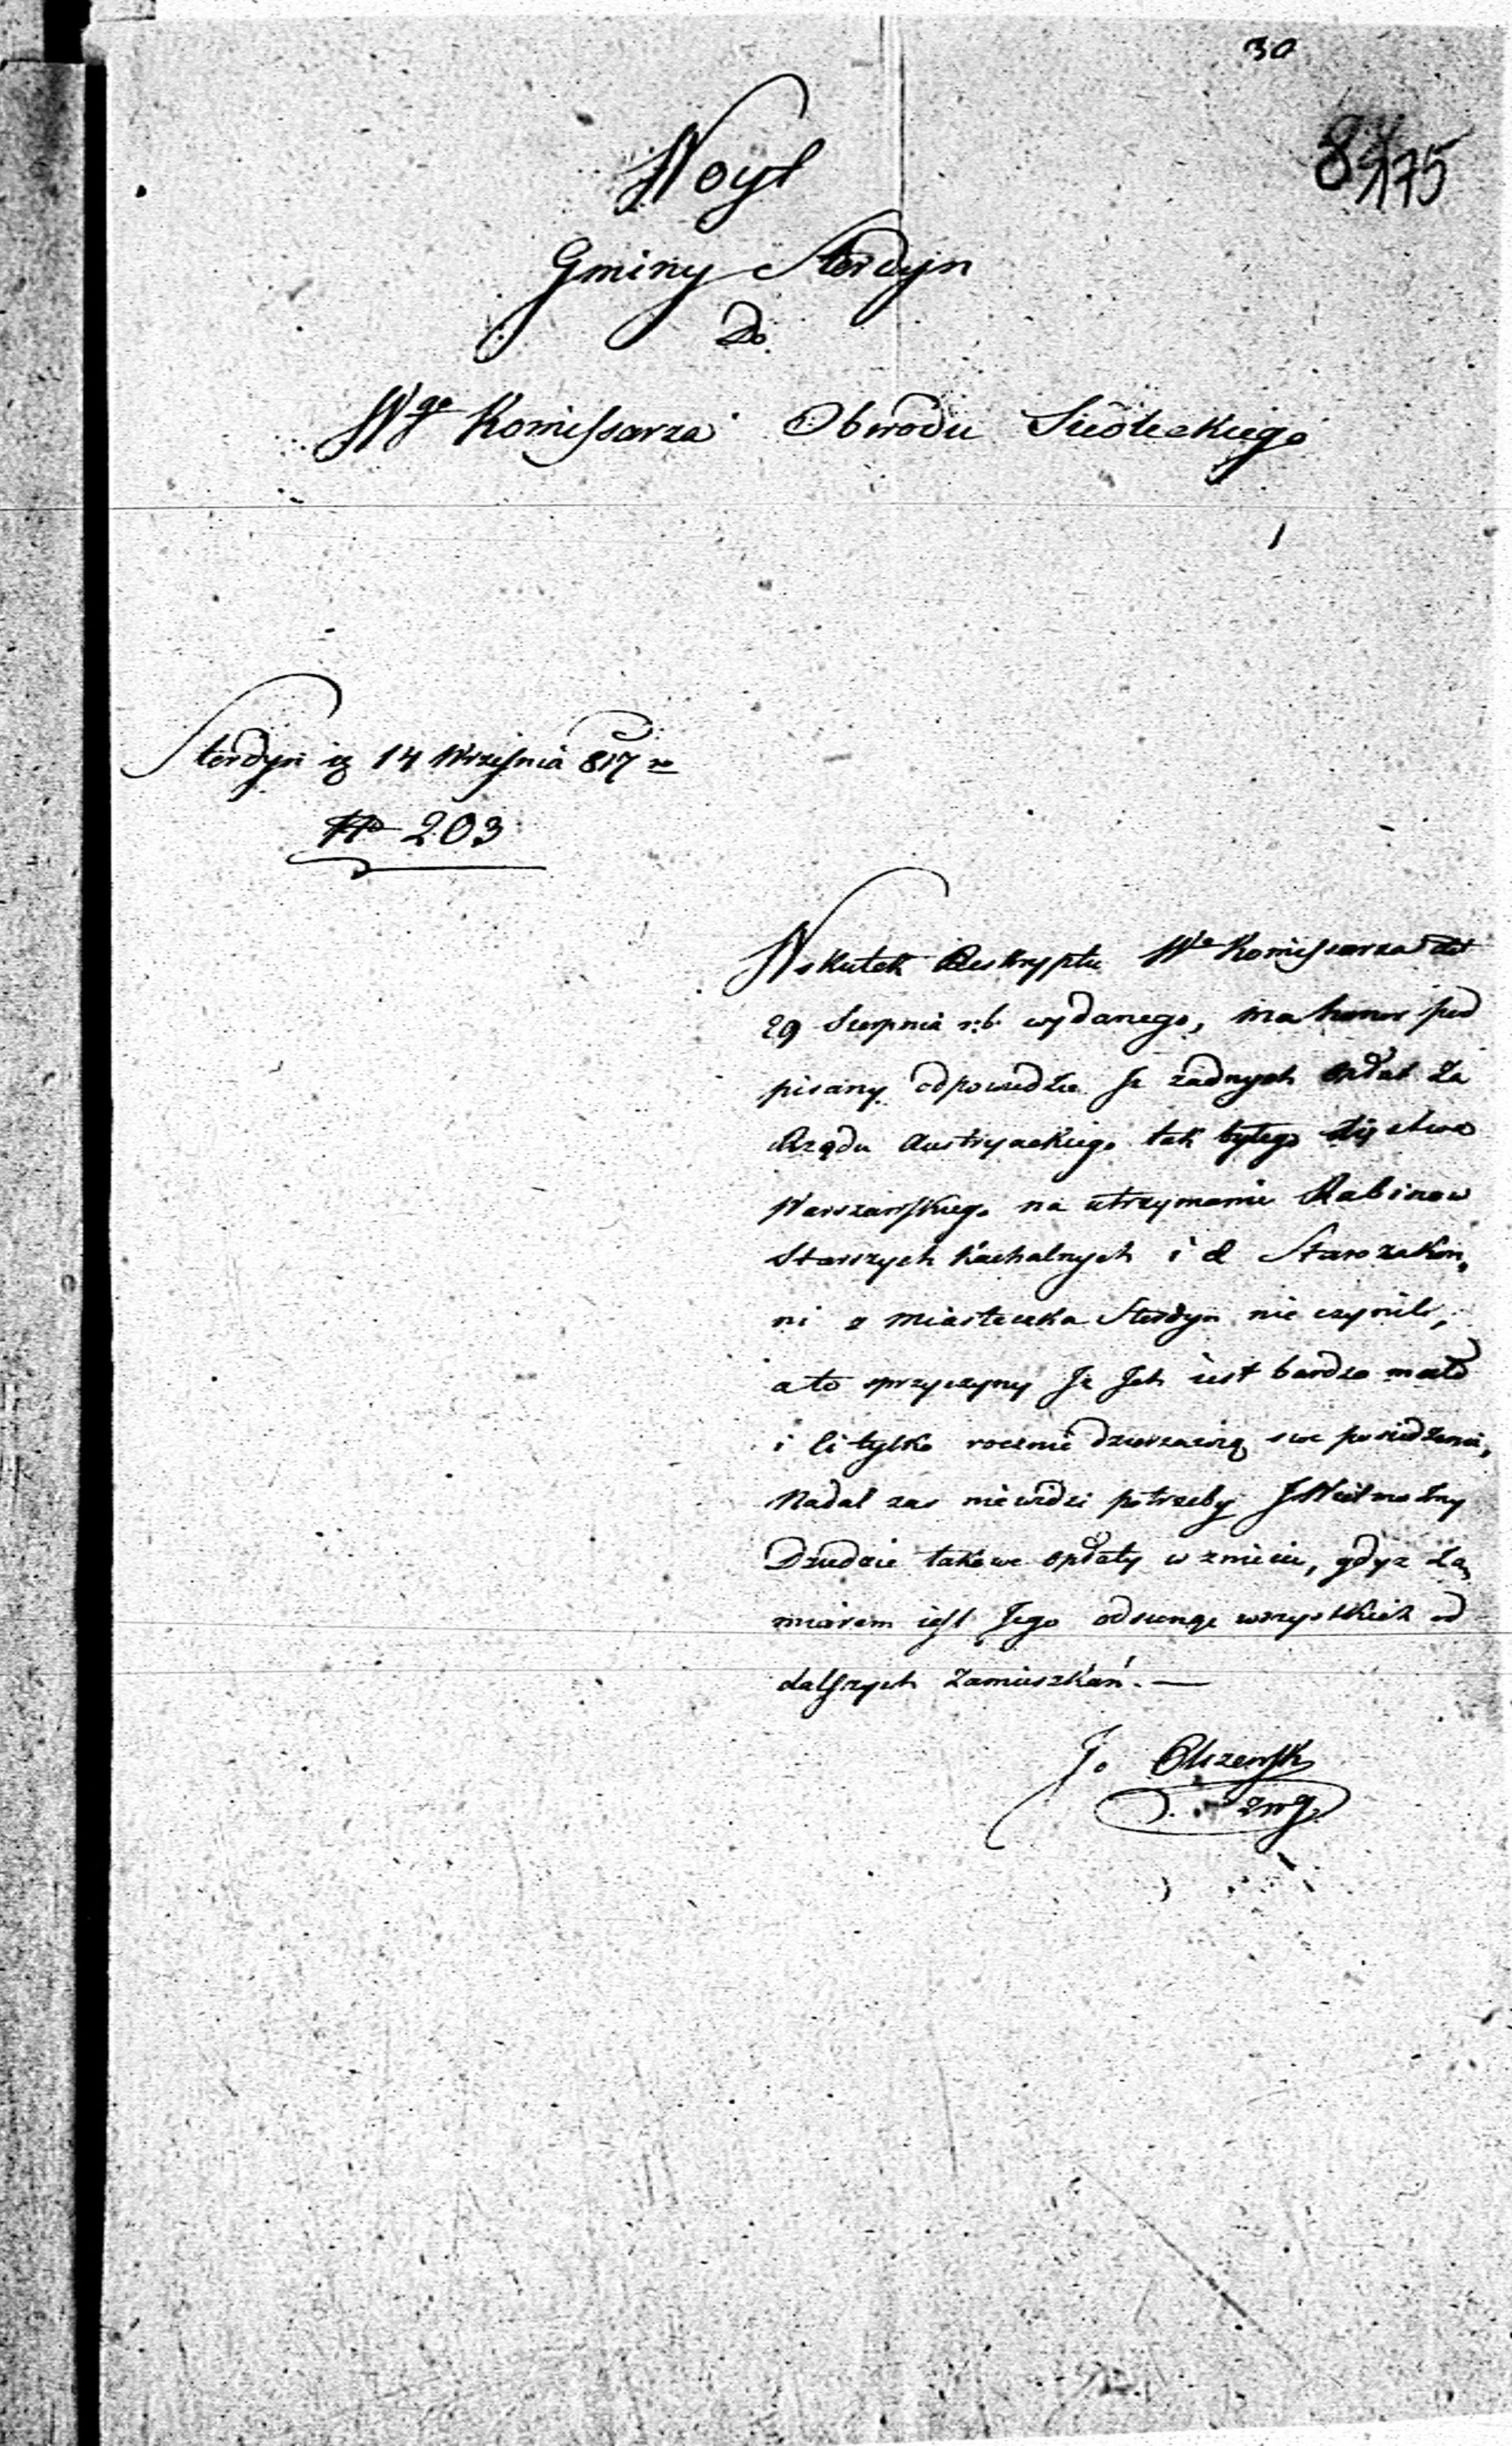 30
84 175
Woyt
Gminy Sterdyn
Do
Wgo Komissarza Obwodu Siedleckiego
Sterdyn 14 Września 817 ro
No 203
Wskutek Reskryptu Wo Komissarza
29 Sierpnia r:b wydanego, ma honor pod
pisany odpowiedzieć Iż żadnych opłat za
Rządu Austryackiego tak byłego
Warszawskiego na utrzymanie Rabinow
Starszych Kachalnych i d Starozakon„
ni z Miasteczka Sterdyn nie czynili,
a to sprzyczyny Iż Ich iest bardzo mało
i li tylko rocznie dzierzawią swe posiedzenia,
Nadal zas niewidzi potrzeby JWielmożny
Dziedzic takowe opłaty w znieść, gdyz Za„
miarem iest Jego odsunąć wszystkich od
dalszych Zamieszkań. —
Jo Olszewsk
zwg